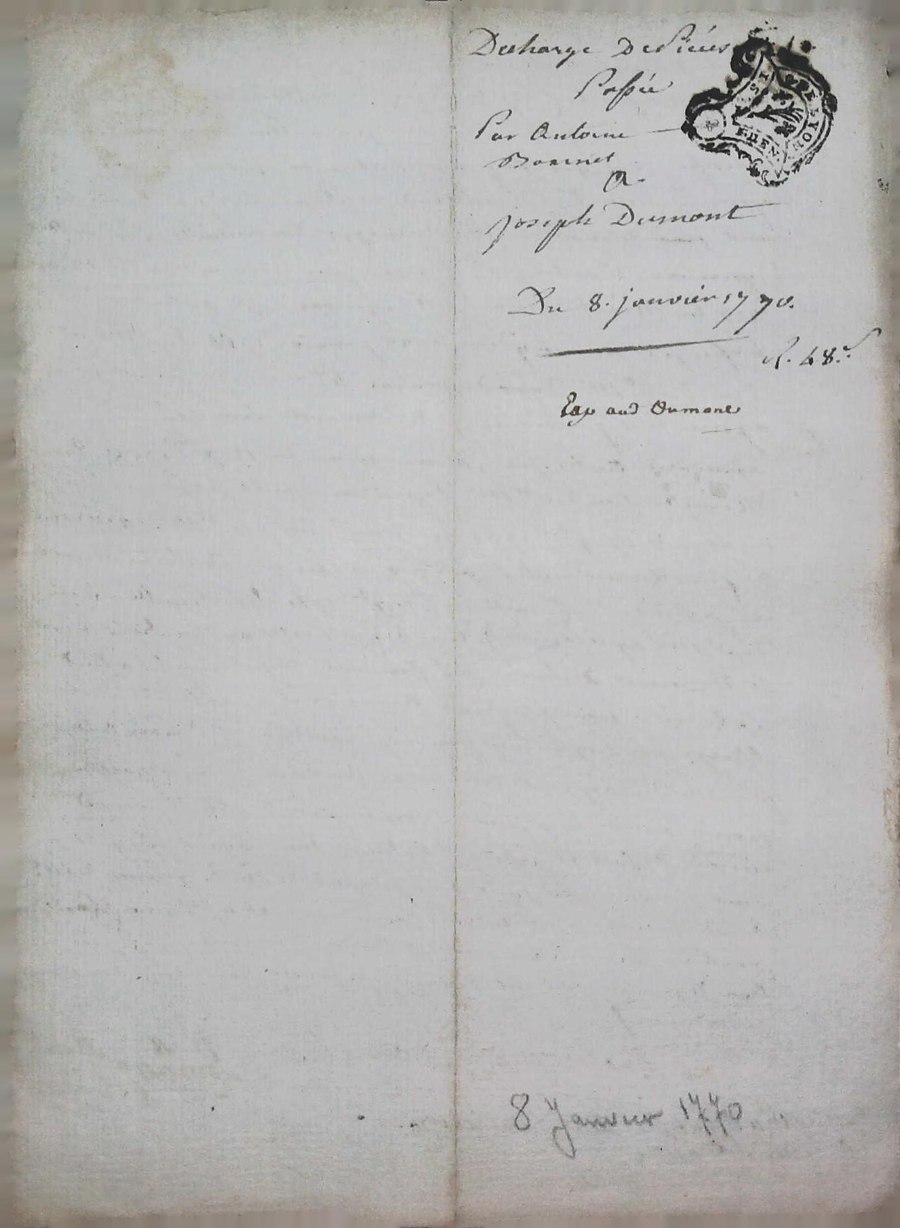 Decharge De Pieces
Passée
Par Antoine
Bonnet
A
Joseph Dumont
Du 8. janvier 1770.
R. 48.s
Exp aud Dumont
8 Janvier 1770